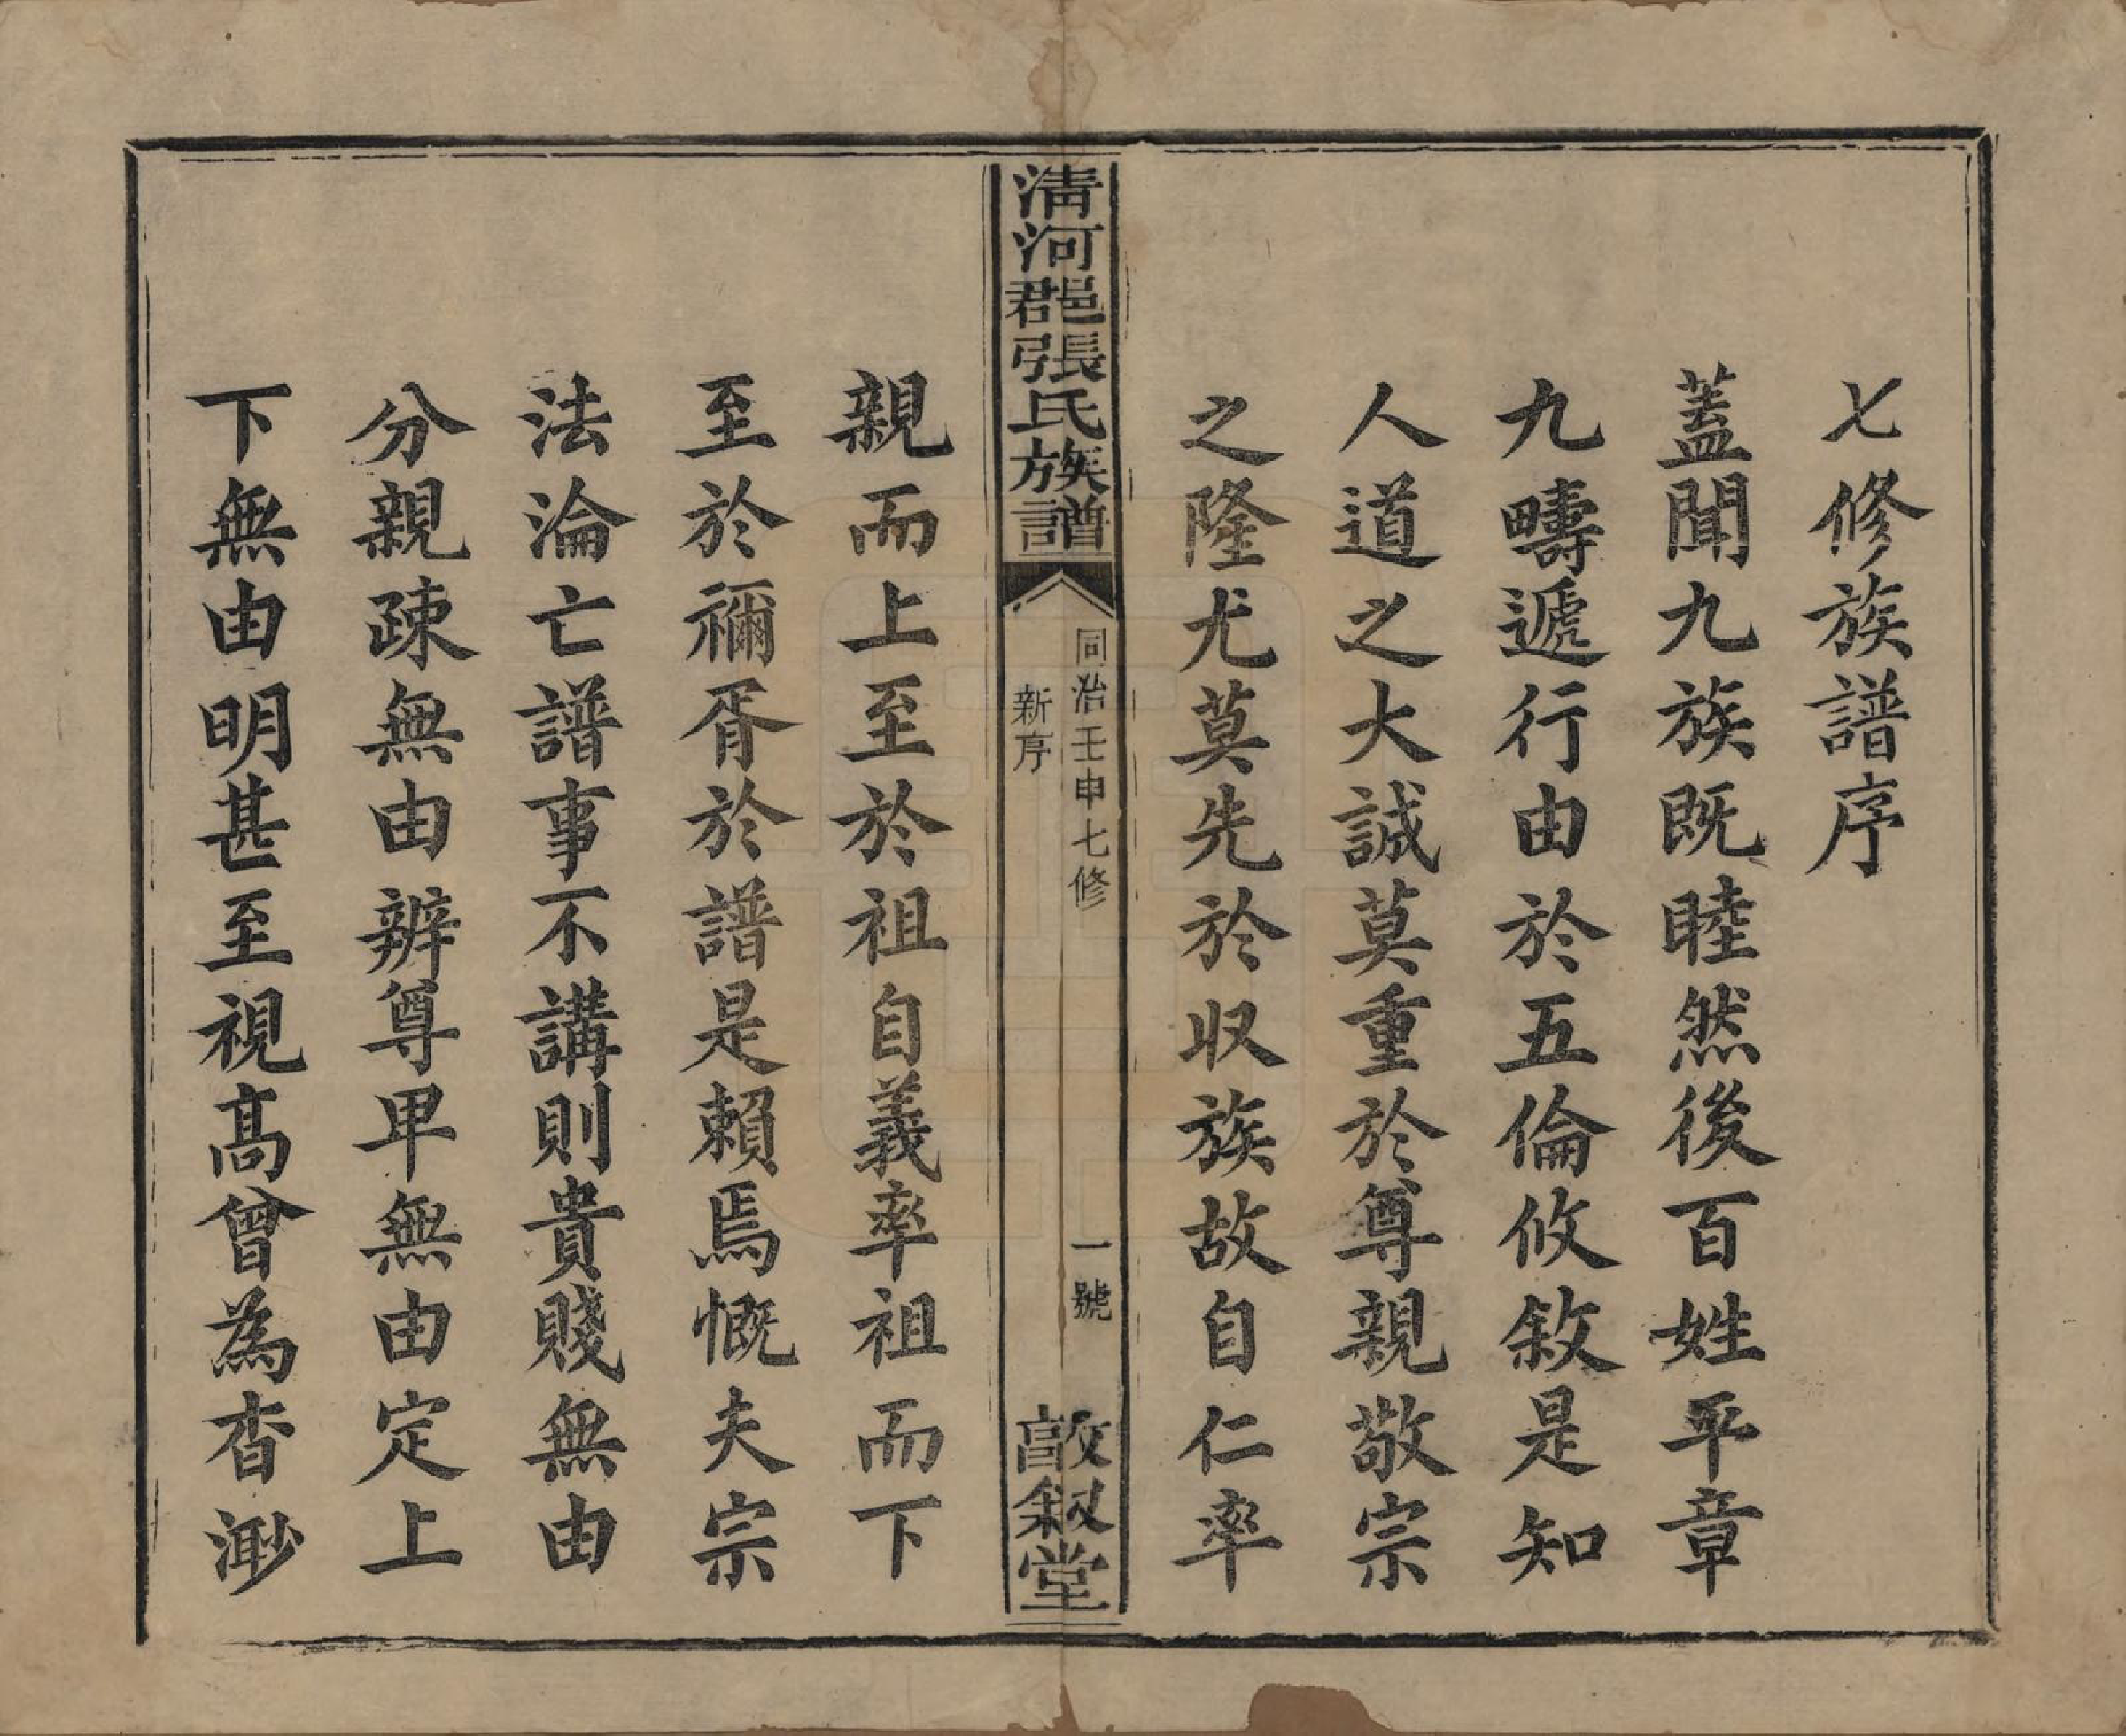 七修族譜序
蓋聞九族既睦然後百姓平章
九疇遞行由於五倫攸敘是知
人道之大誠莫重於尊親敬宗
之隆尤莫先於収族故自仁率
清河郡邑張氏族譜
同治壬申七修
新序
一號
敦叙堂
親而上至於祖自義率祖而下
至於禰胥於譜是賴焉慨夫宗
法淪亡譜事不講則貴賤無由
分親疎無由辨尊卑無由定上
下無由明甚至視高曾為杳渺